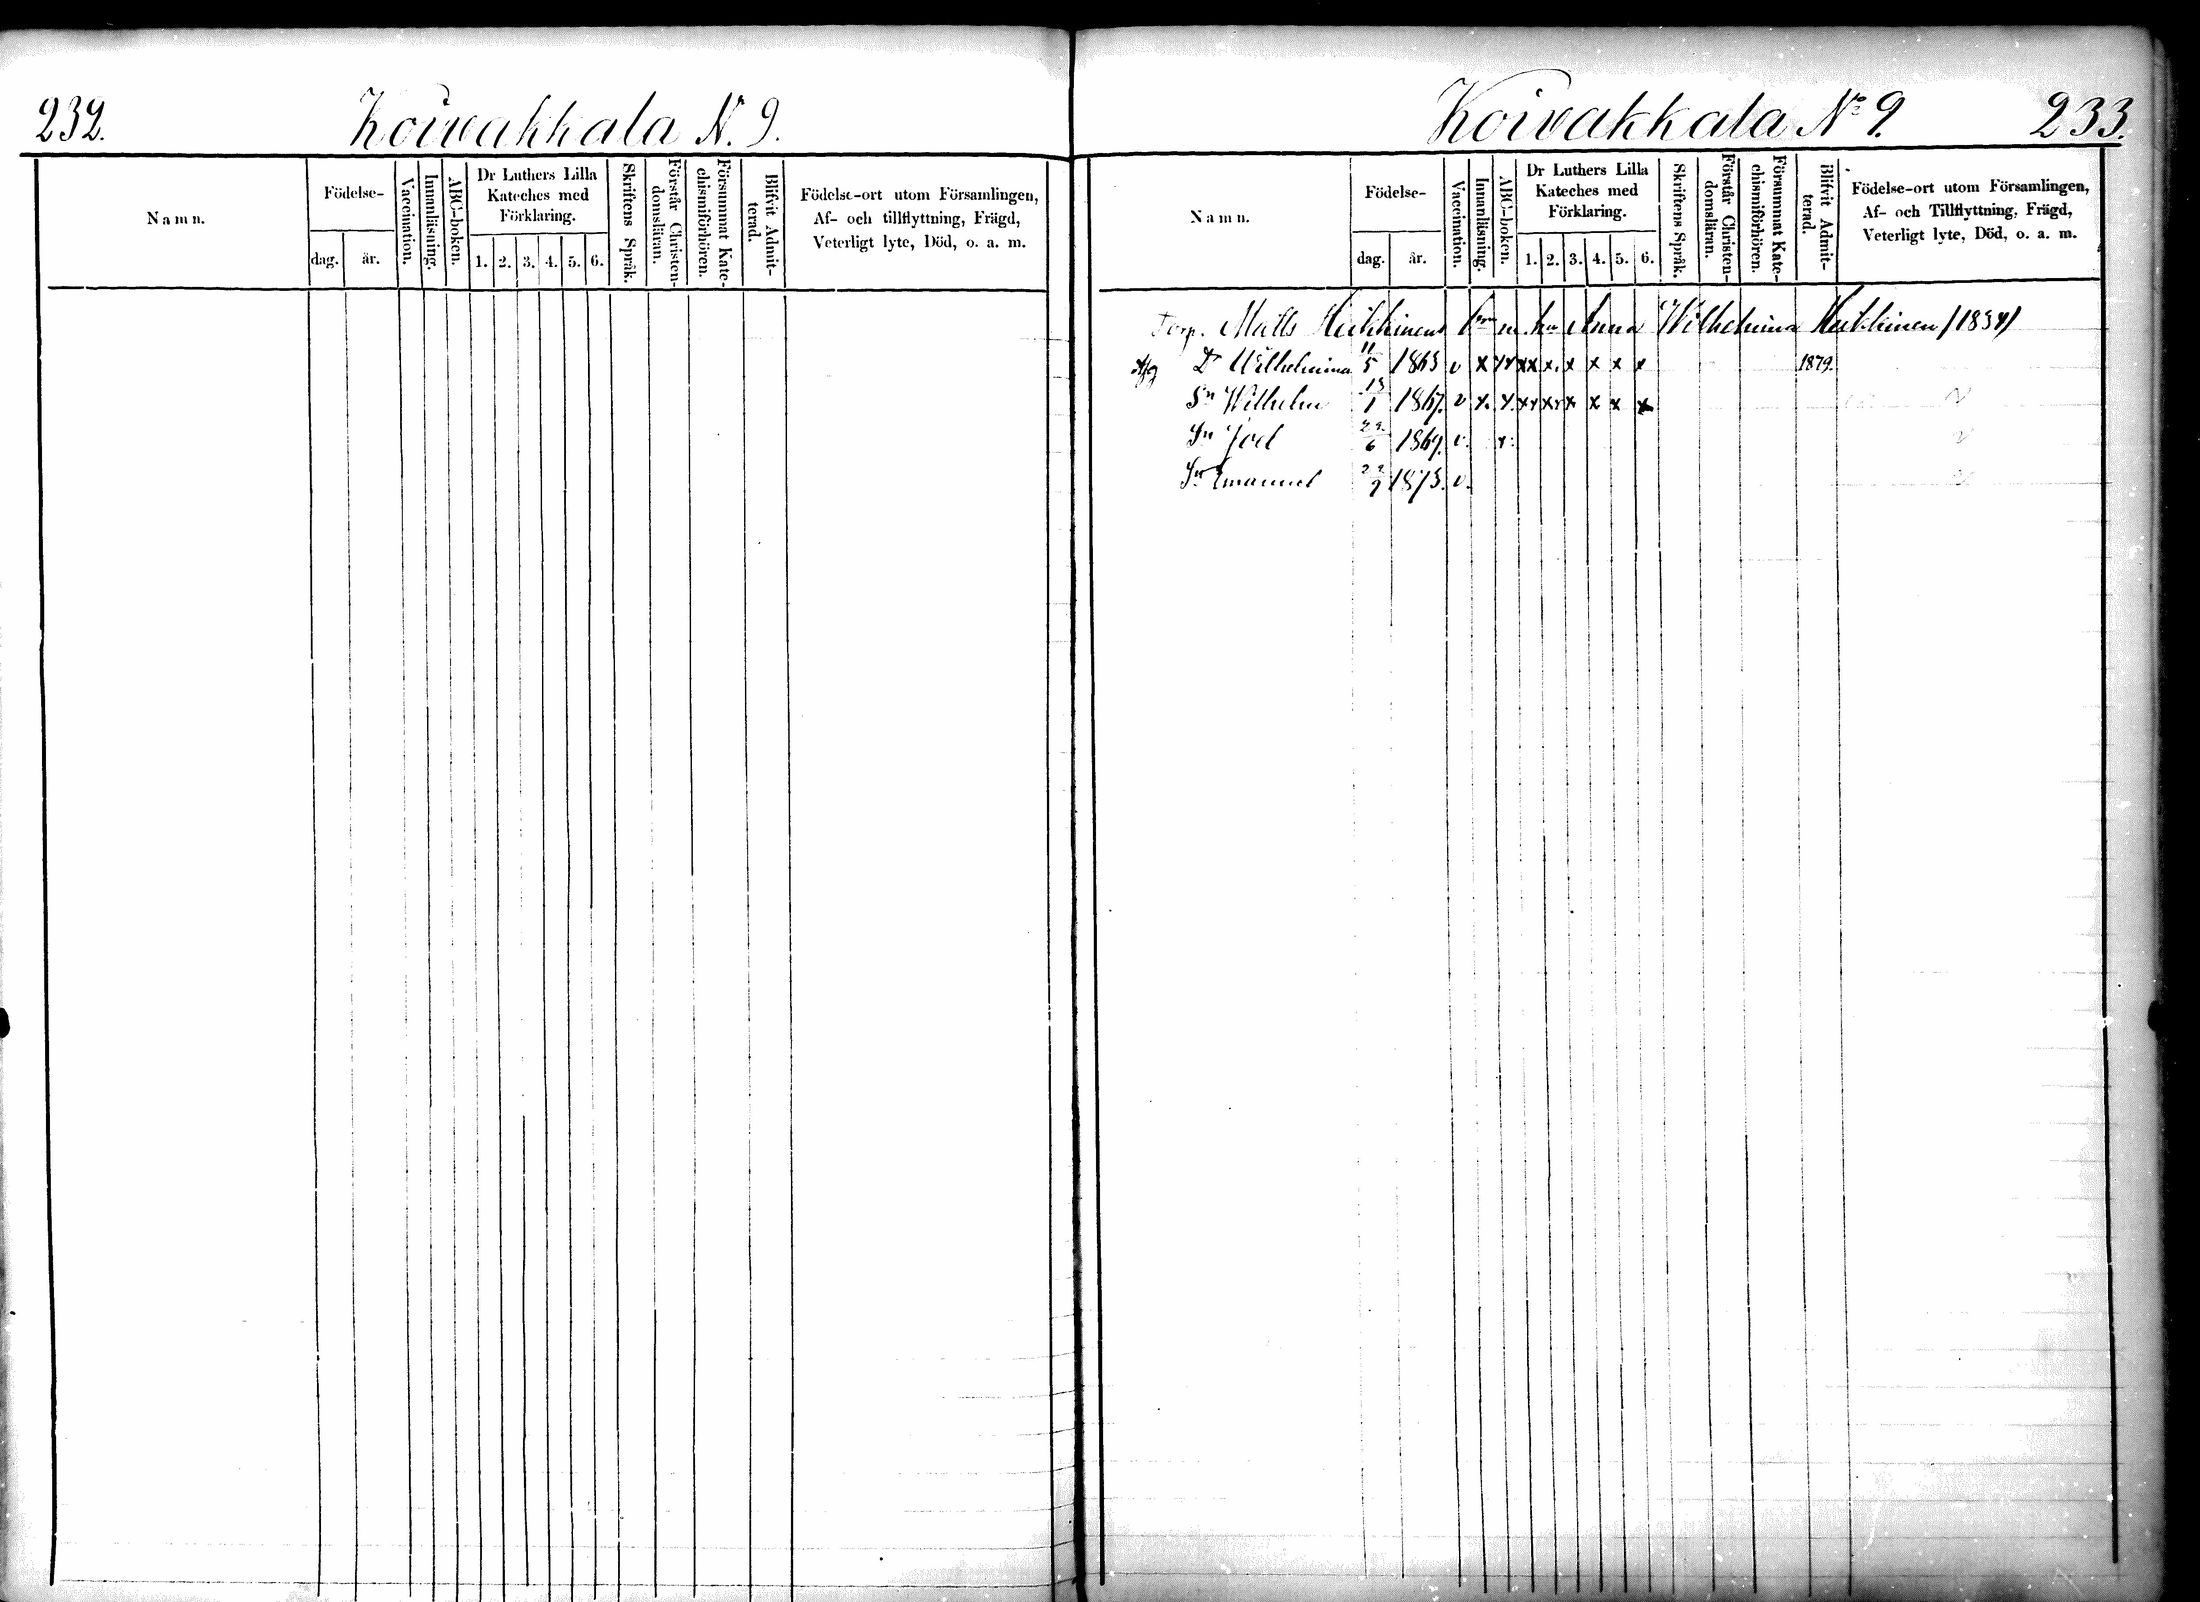 232.
Koivakkala N. 9.
Namn.
Födelse-
dag.
år.
Vaccination.
Innanläsning.
ABC-boken.
Dr Luthers Lilla
Kateches med
Förklaring.
1. 2. 3. 4. 5. 6.
Skriftens Språk.
Förstår Christen-
domsläran.
Försummat Kate-
chismiförhören.
Blifvit Admit-
terad.
Födelse-ort utom Församlingen,
Af- och tillflyttning, Frägd,
Veterligt lyte, Död, o. a. m.
Koivakkala No 9.
233.
Namn.
Födelse-
dag.
år.
Vaccination.
Innanläsning.
ABC-boken.
Dr Luthers Lilla
Kateches med
Förklaring.
1. 2. 3. 4. 5. 6.
Skriftens Språk.
Förstår Christen-
domsläran.
Försummat Kate-
chismiförhören.
Blifvit Admit-
terad.
Födelse-ort utom Församlingen,
Af- och Tillflyttning, Frägd,
Veterligt lyte, Död, o. a. m.
Torp. Matts Heikkinens Anna Wilhelmina Heikkinen /1834/
Dr Wilhelmina 11/5 1863 v x x x x x x x x x x 1879.
Sn Wilhelm 13/1 1867. v x. x. x x x x x x x x
Sn Joel 29/6 1869. v. x.
Sn Emanuel 22/9 1873. v.